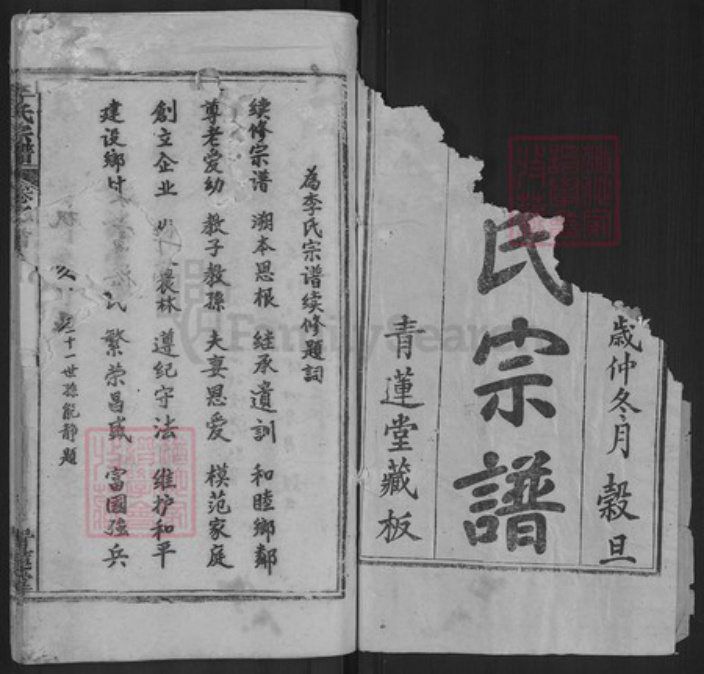 歲仲冬月 穀旦
氏宗譜
青蓮堂藏板
為李氏宗谱续修題詞
续修宗谱 溯本思根 继承遺訓 和睦鄉鄰
尊老爱幼 教子教孫 夫妻恩爱 模范家庭
創立企业 農林 遵纪守法 维护和平
建设鄉 民 繁荣昌盛 富國强兵
二十一世孫能静題
氏宗譜
FamilySearch